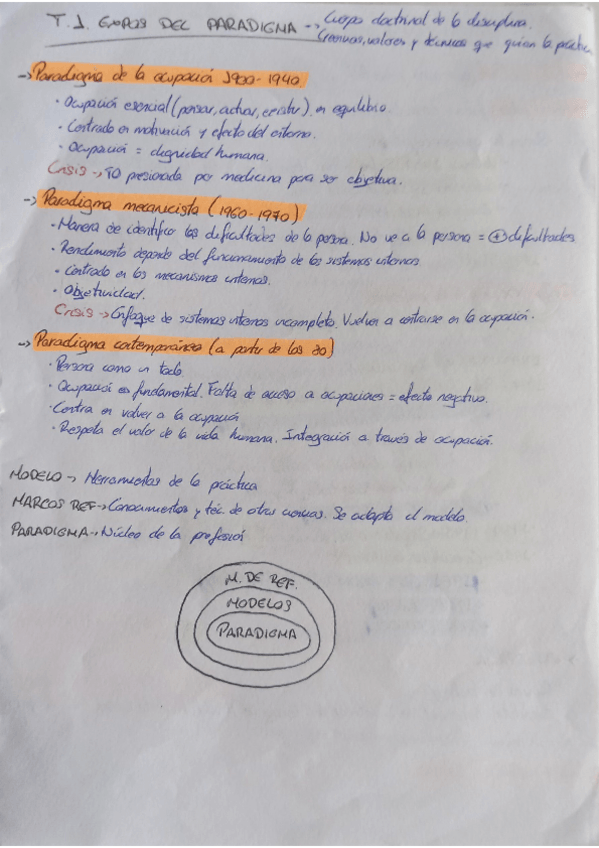 T.1. ETAPAS DEL PARADIGMA → Cuerpo doctrinal de la disciplina.
Creencias, valores y técnicas que guían la práctica
→ Paradigma de la ocupación 1900-1940.
· Ocupación esencial (pensar, actuar, existir) en equilibrio.
· Centrado en motivación y efecto del entorno.
· Ocupación = dignidad humana.
Crisis → TO presionada por medicina para ser objetiva.
→ Paradigma mecanicista (1960-1970)
· Manera de identificar las dificultades de la persona. No ve a la persona = (+) dificultades
· Rendimiento depende del funcionamiento de los sistemas internos
· Centrado en los mecanismos internos.
· Objetividad.
Crisis → Enfoque de sistemas internos incompleto. Vuelven a centrarse en la ocupación.
→ Paradigma contemporáneo (a partir de los 80)
· Persona como un todo.
· Ocupación es fundamental. Falta de acceso a ocupaciones = efecto negativo.
· Centra en volver a la ocupación
· Respeta el valor de la vida humana. Integración a través de ocupación.
MODELO → Herramientas de la práctica
MARCOS REF → Conocimientos y téc. de otras ciencias. Se adapta el modelo.
PARADIGMA → Núcleo de la profesión
M. DE REF.
MODELOS
PARADIGMA